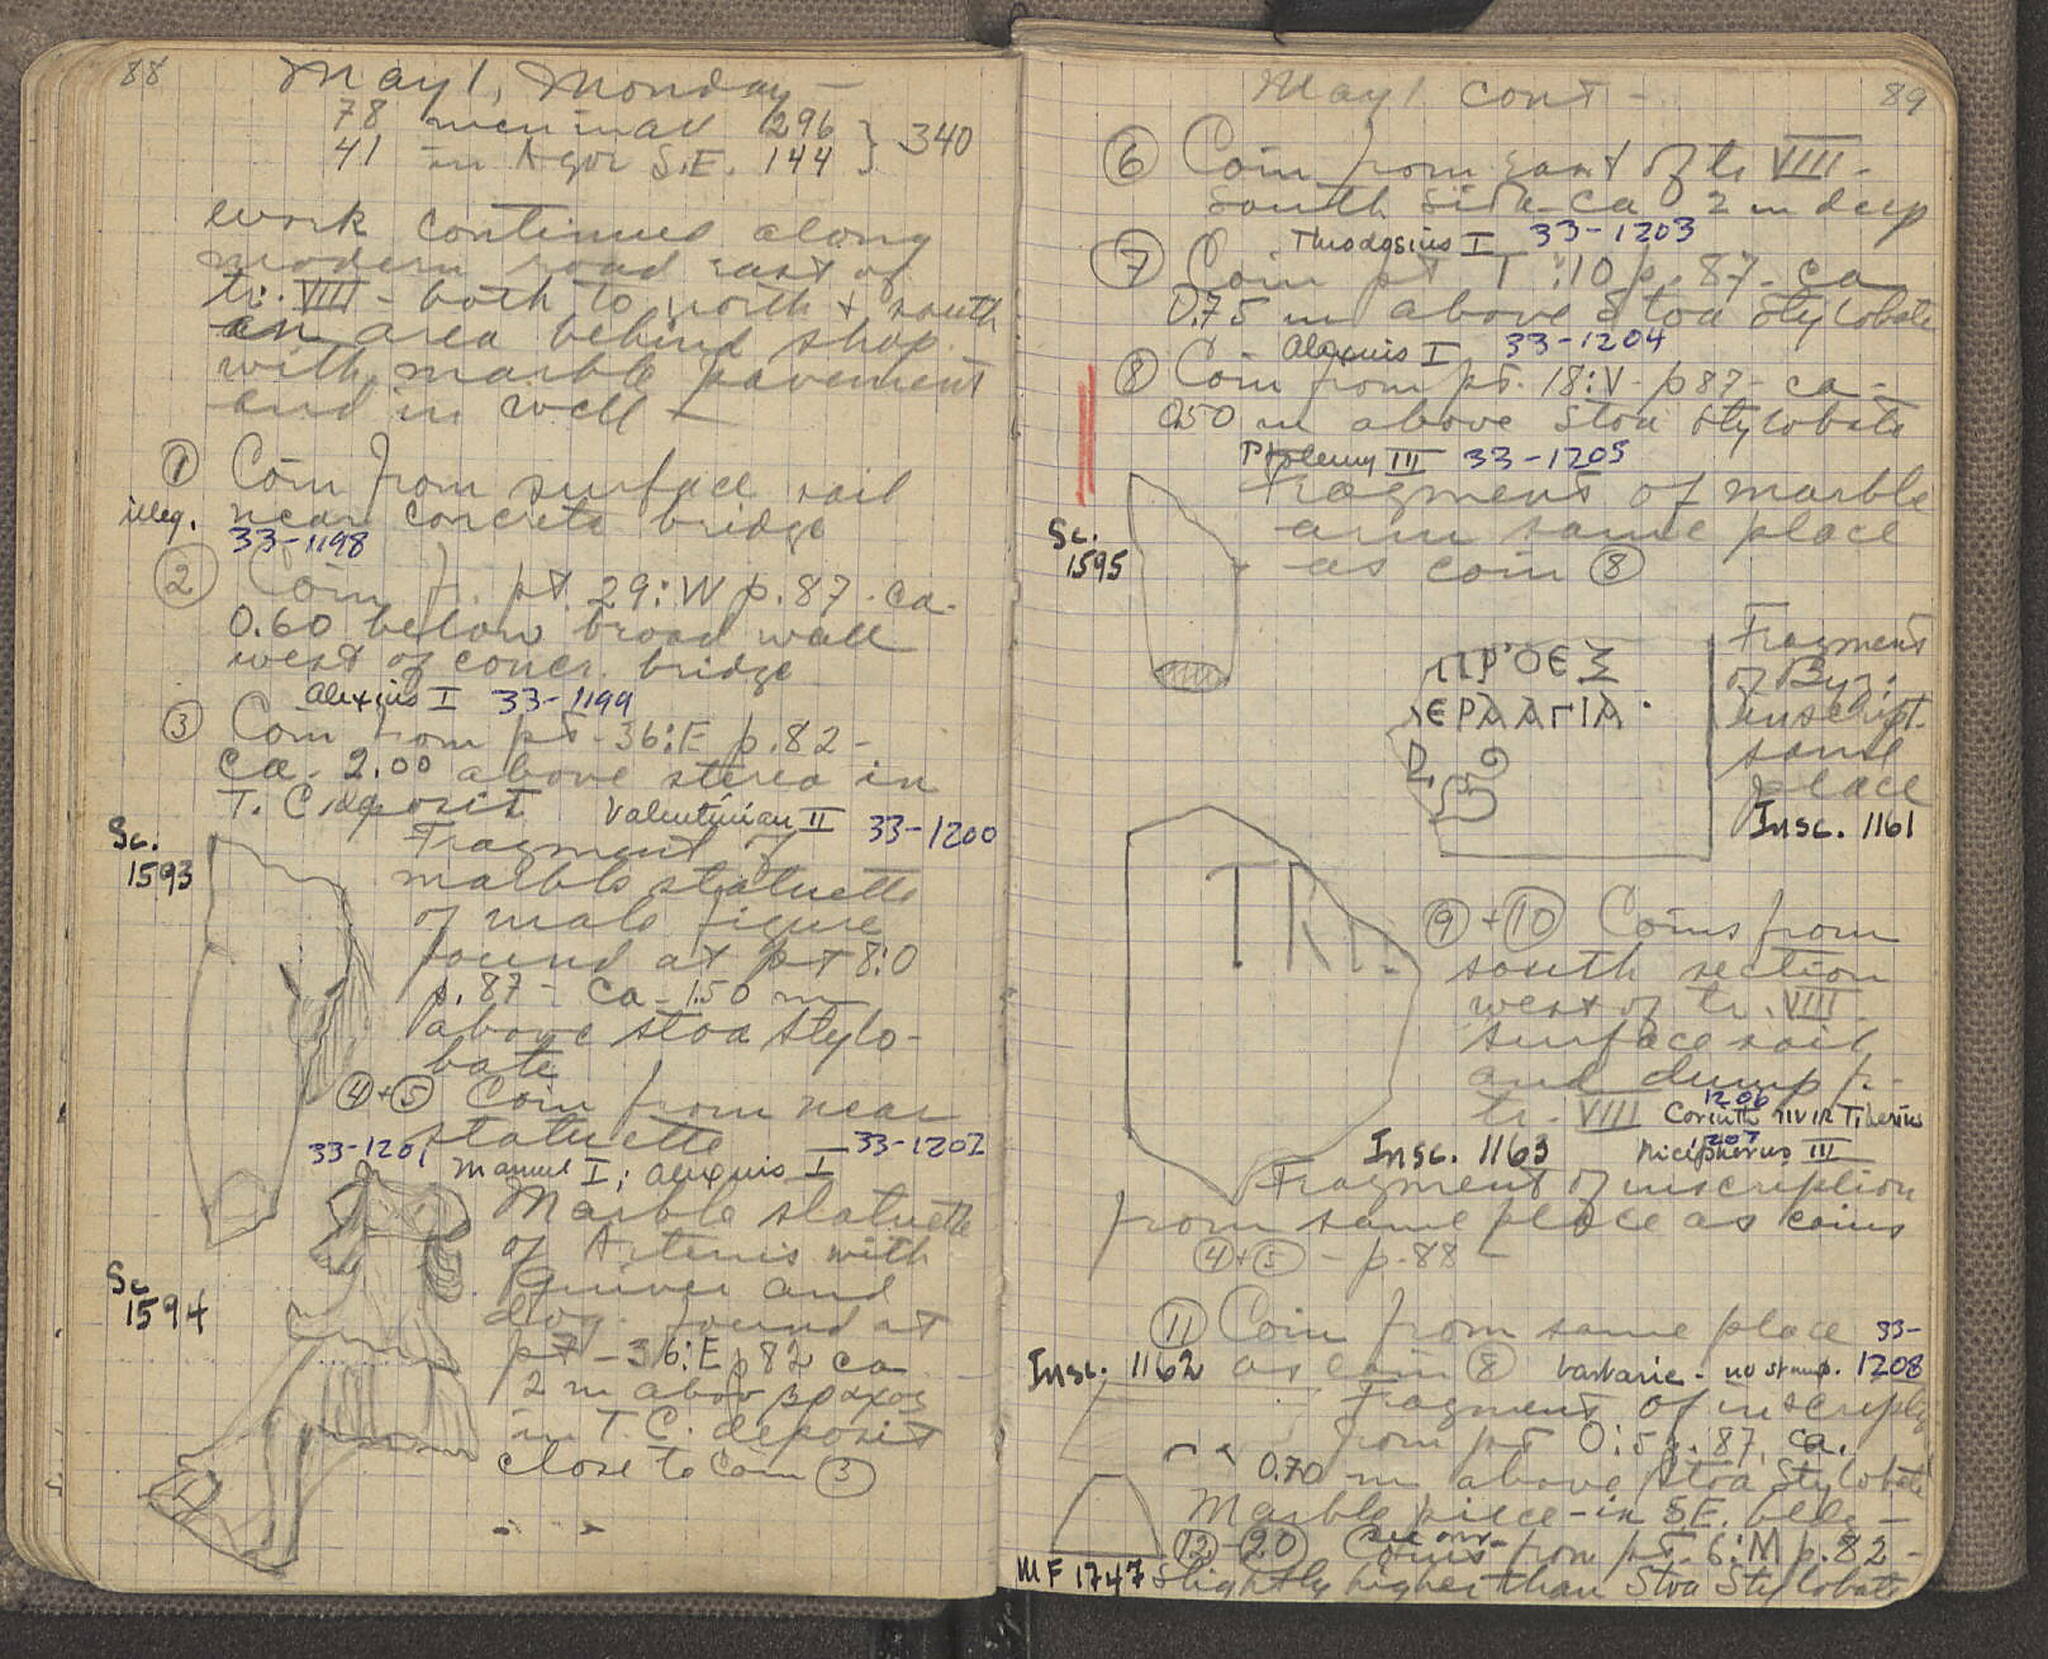 88
May 1, Monday —
78 men in all 296 } 340
41 in Agor S.E. 144
Work continued along
modern road east of
tr. VIIII - both to north + south
an area behind shop
with marble pavement
and in well —
① Coin from surface soil
illeg. near concrete bridge
33-1198
② Coin fr. pt. 29:W p.87 - ca.
0.60 below broad wall
west of concr. bridge
Alexius I 33-1199
③ Coin from pt - 36:E p.82 -
ca. 2.00 above stereo in
T. C. deposit Valentinian II 33-1200
Sc. 1593
Fragment of
marble statuette
of male figure
found at pt 8:O
p. 87 - ca - 1.50 m
above stoa stylo-
bate
④+⑤ Coin from near
statuette
33-1201 33-1202
Manuel I; Alexius I
Sc. 1594
Marble statuette
of Artemis with
quiver and
dog. found at
pt - 36:E p 82 ca
2 m above βραχος
in T. C. deposit
close to coin ③
89
May 1 cont -
⑥ Coin from east of tr VIIII -
south side - ca 2 m deep
Theodosius I 33-1203
⑦ Coin pt T:10 p. 87 - ca
0.75 m above Stoa Stylobate
Alexius I 33-1204
⑧ Coin from pt. 18:V - p 87 - ca -
0.50 m above Stoa Stylobate
Ptolemy III 33-1205
Sc. 1595
Fragment of marble
arm same place
as coin ⑧
ΠΡΟΕΣ
ΕΡΑΑΓΙΑ
Fragment
of Byz.
inscript.
same
place
Insc. 1161
TR
⑨+⑩ Coins from
south section
west of tr. VIIII
surface soil
and dump fr.
tr. VIIII 1206 Corinth IIVIR Tiberius
Insc. 1163 1207 Nicephorus III
Fragment of inscription
from same place as coins
④+⑤ - p. 88 -
⑪ Coin from same place 33-
Insc. 1162 as coin ⑧ barbaric - no stamp. 1208
Fragment of inscription
from pt O:5 p. 87, ca.
0.70 m above Stoa Stylobate
Marble piece - in S.E.
⑫-⑳ Coins from pt. 6:M p. 82 -
MF 1747 slightly higher than Stoa Stylobate